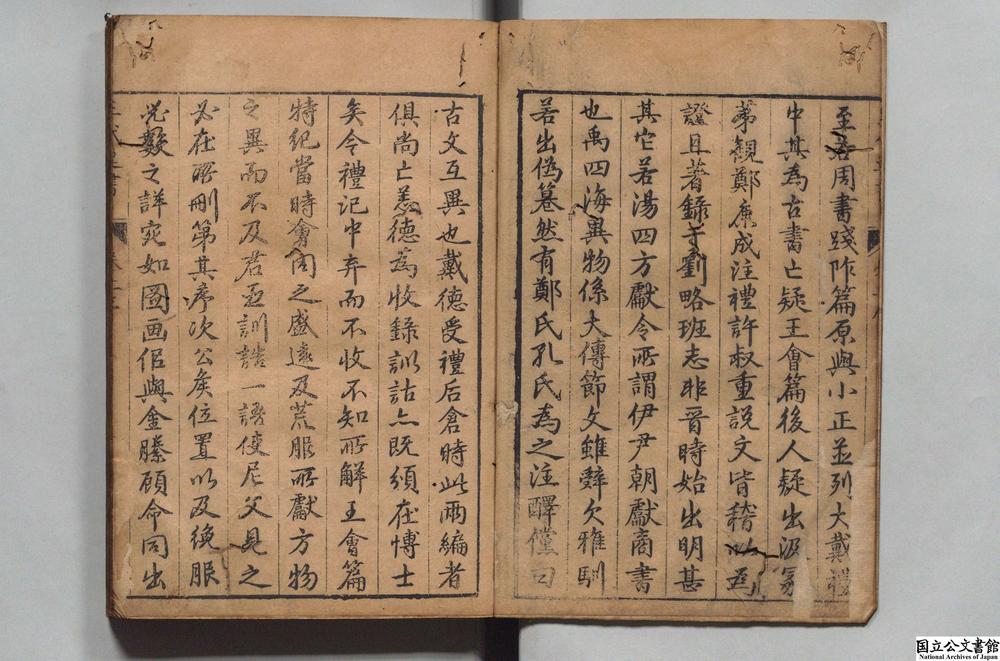 至若周書踐阼篇原與小正並列大戴禮
中其為古書亡疑王會篇後人疑出汲冢
第觀鄭康成注禮許叔重說文皆稽以為
證且著錄于劉略班志非晉時始出明甚
其它若湯四方獻令所謂伊尹朝獻商書
也禹四海異物係大傳節文雖辭欠雅馴
若出偽篡然有鄭氏孔氏為之注釋儻曰
古文互異也戴德受禮后倉時此兩編者
俱尚亡恙德為收錄訓詁亦既頒在博士
矣今禮記中弃而不收不知所解王會篇
特紀當時會同之盛遠及荒服所獻方物
之異而不及君臣訓誥一語使尼父見之
必在所刪第其序次公矦位置以及絶服
之詳宛如圖画佀與金縢顧命同出
国立公文書館
National Archives of Japan